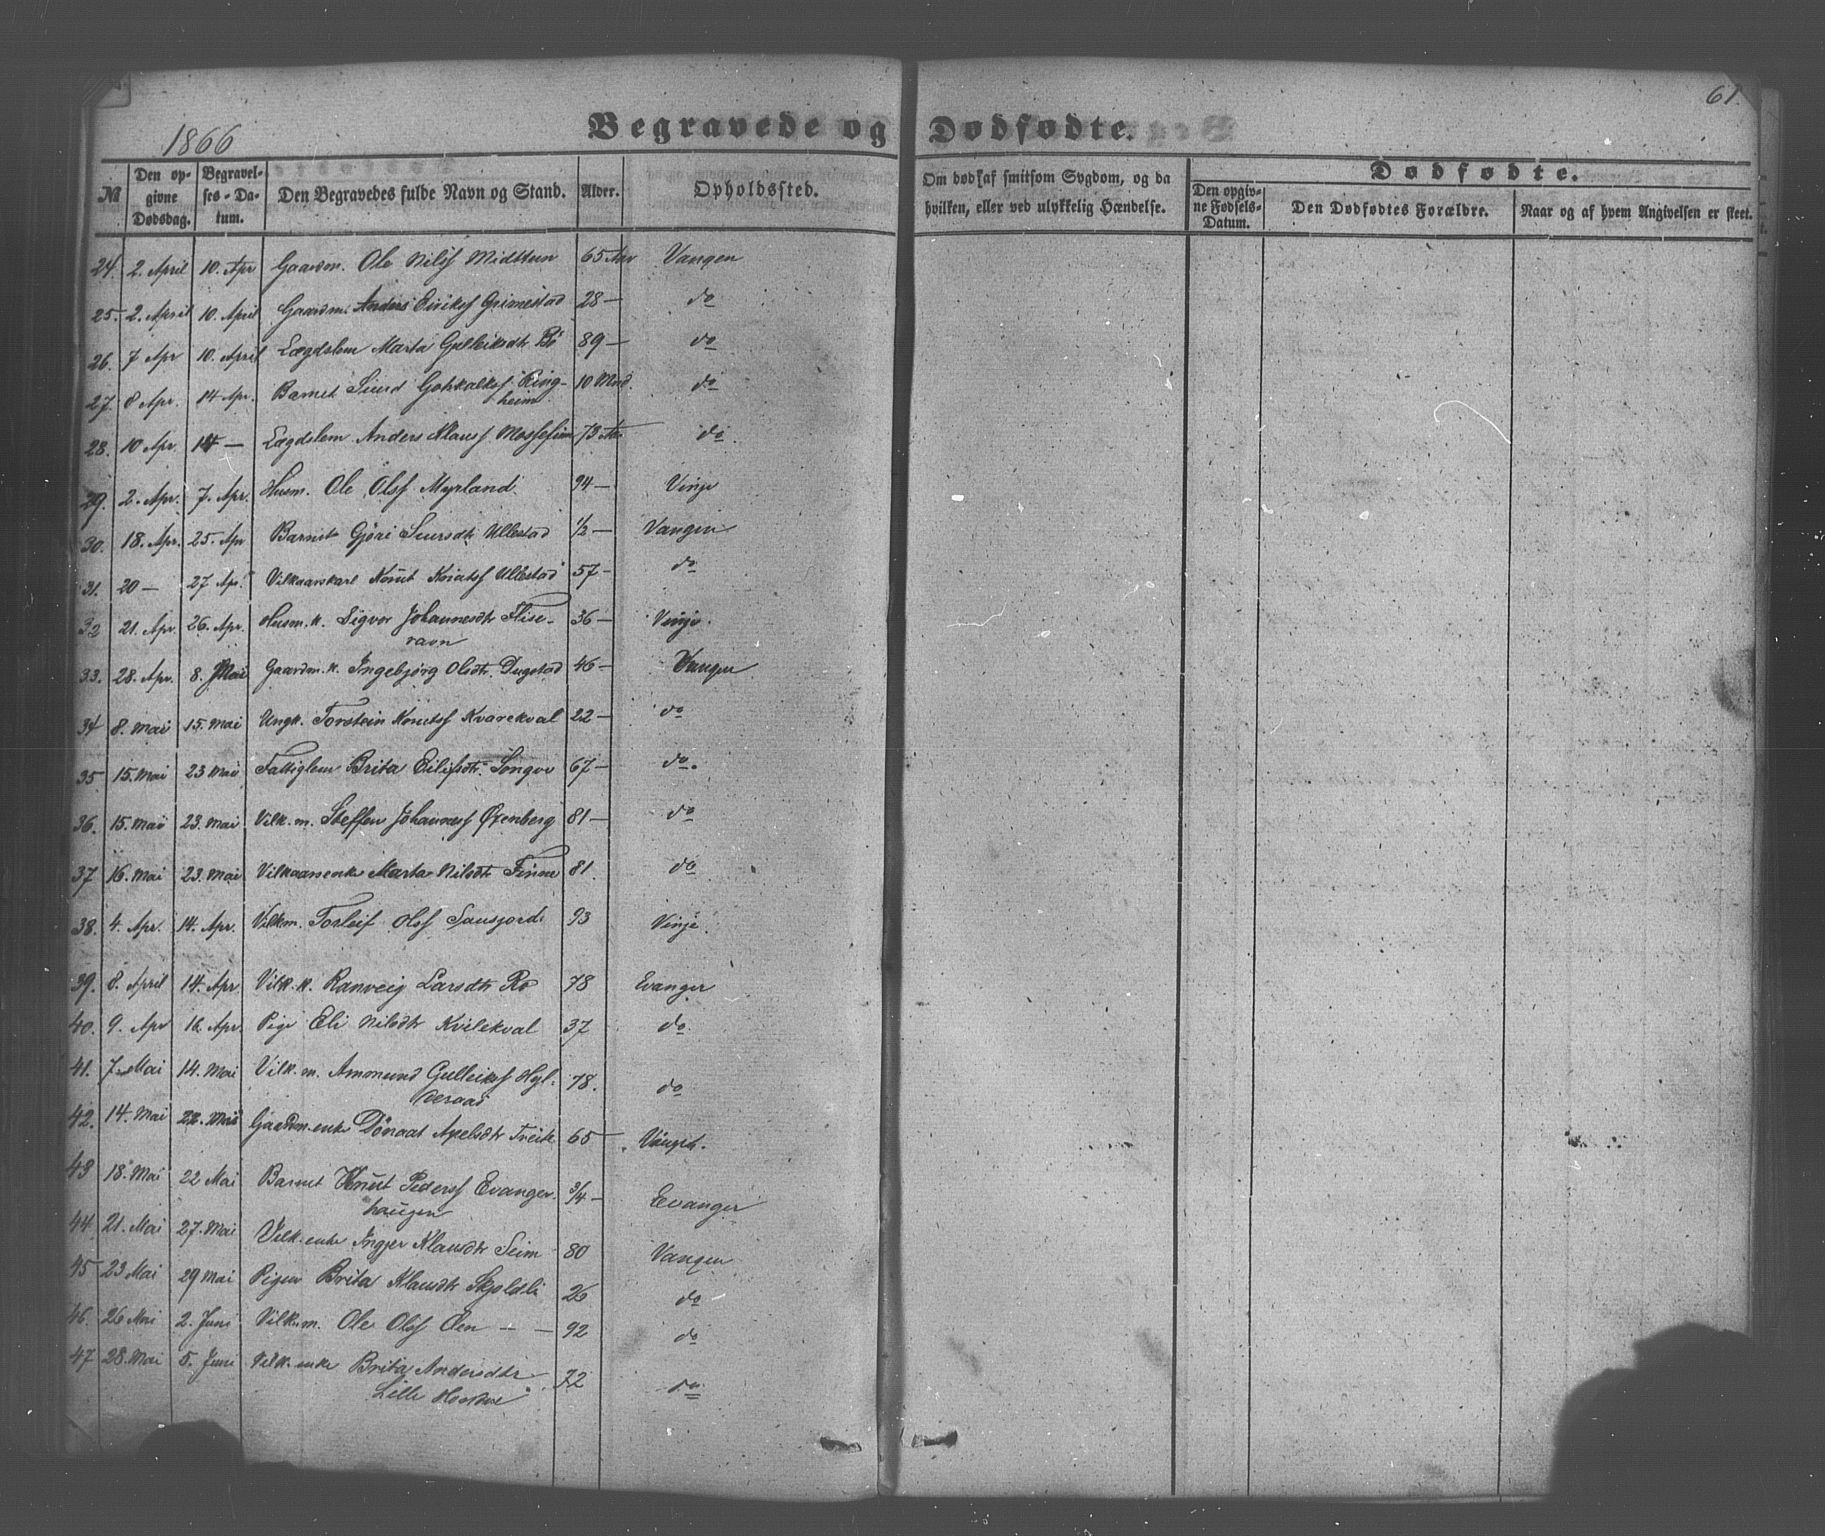 61.
1866
Begravede og Dødfødte.
№
Den opgivne Dødsdag.
Begravelses-Datum.
Den Begravedes fulde Navn og Stand.
Alder.
Opholdssted.
Om død af smitsom Sygdom, og da hvilken, eller ved ulykkelig Hændelse.
Dødfødte.
Den opgivne Fødsels-Datum.
Den Dødfødtes Forældre.
Naar og af hvem Angivelsen er skeet.
24. 2. April 10. Apr Gaardm. Ole Nilsf Midttun 65 Aar Vangen
25. 2. April 10. April Gaardm. Anders Eiriksf Grimestad 28 — do
26. 7 Apr 10. April Lægdslem Marta Gulleiksdtr Bö 89 — do
27. 8 Apr. 14 Apr. Barnet Siurd Gotskalksf Ring- 10 Mnd. do
heim
28. 10 Apr. 14 — Lægdslem Anders Klausf Mossefinn 73 Aar do
29. 2. Apr. 7. Apr. Husm. Ole Olsf Myrland. 94 — Vinje
30. 18. Apr. 25. Apr Barnet Gjöri Siursdtr Ullestad ½ — Vangen
31. 20 — 27 Apr. Vilkaarskarl Knut Knutsf Ullestad 57 — do
32 21. Apr. 26. Apr. Husm. k. Sigvor Johannesdtr Flise- 36 — Vinje.
ravn
33. 28. Apr. 8. Mai Gaardm. k. Ingebjörg Olsdtr. Dugstad 46 — Vangen
34 8. Mai 15. Mai Ungk. Torstein Knutsf Kvarekval 22 — do
35 15. Mai 23 Mai Fattiglem Brita Eilifsdtr. Songve 67 — do.
36. 15. Mai 23. Mai Vilk. m. Steffen Johannesf Öxenberg 81 — do
37 16. Mai 23. Mai Vilkaarsenke Marta Nilsdtr Finne 81. do
38. 4. Apr. 14. Apr. Vilkm. Torleif Olsf 93 Vinje.
39. 8. April 14. Apr. Vilk. k. Ranveig Larsdtr Rö 78 Evanger
40. 9. Apr 16. Apr. Pige Eli Nilsdtr Kvilekval 37 do.
41. 7. Mai 14. Mai Vilk. m. Ammund Gulleiksf Hyl- 78. do
deraas
42. 14. Mai 22. Mai Gaardm. enke Dönaat Apelsdtr Tveite 65 — Vangen.
43 18. Mai 22 Mai Barnet Knut Pedersf Evanger- ¾ — Evanger
haugen
44 21. Mai 27. Mai Vilk. enke Ingjer Klausdtr Seim 80 Vangen
45 23 Mai 29 Mai Pigen Brita Klausdtr Skjoldli 26 do
46. 26 Mai 2. Juni Vilkm. Ole Olsf Öen — — 92 do
47 28. Mai 5. Juni Vilk. enke Brita Andersdtr 72 do
Lille